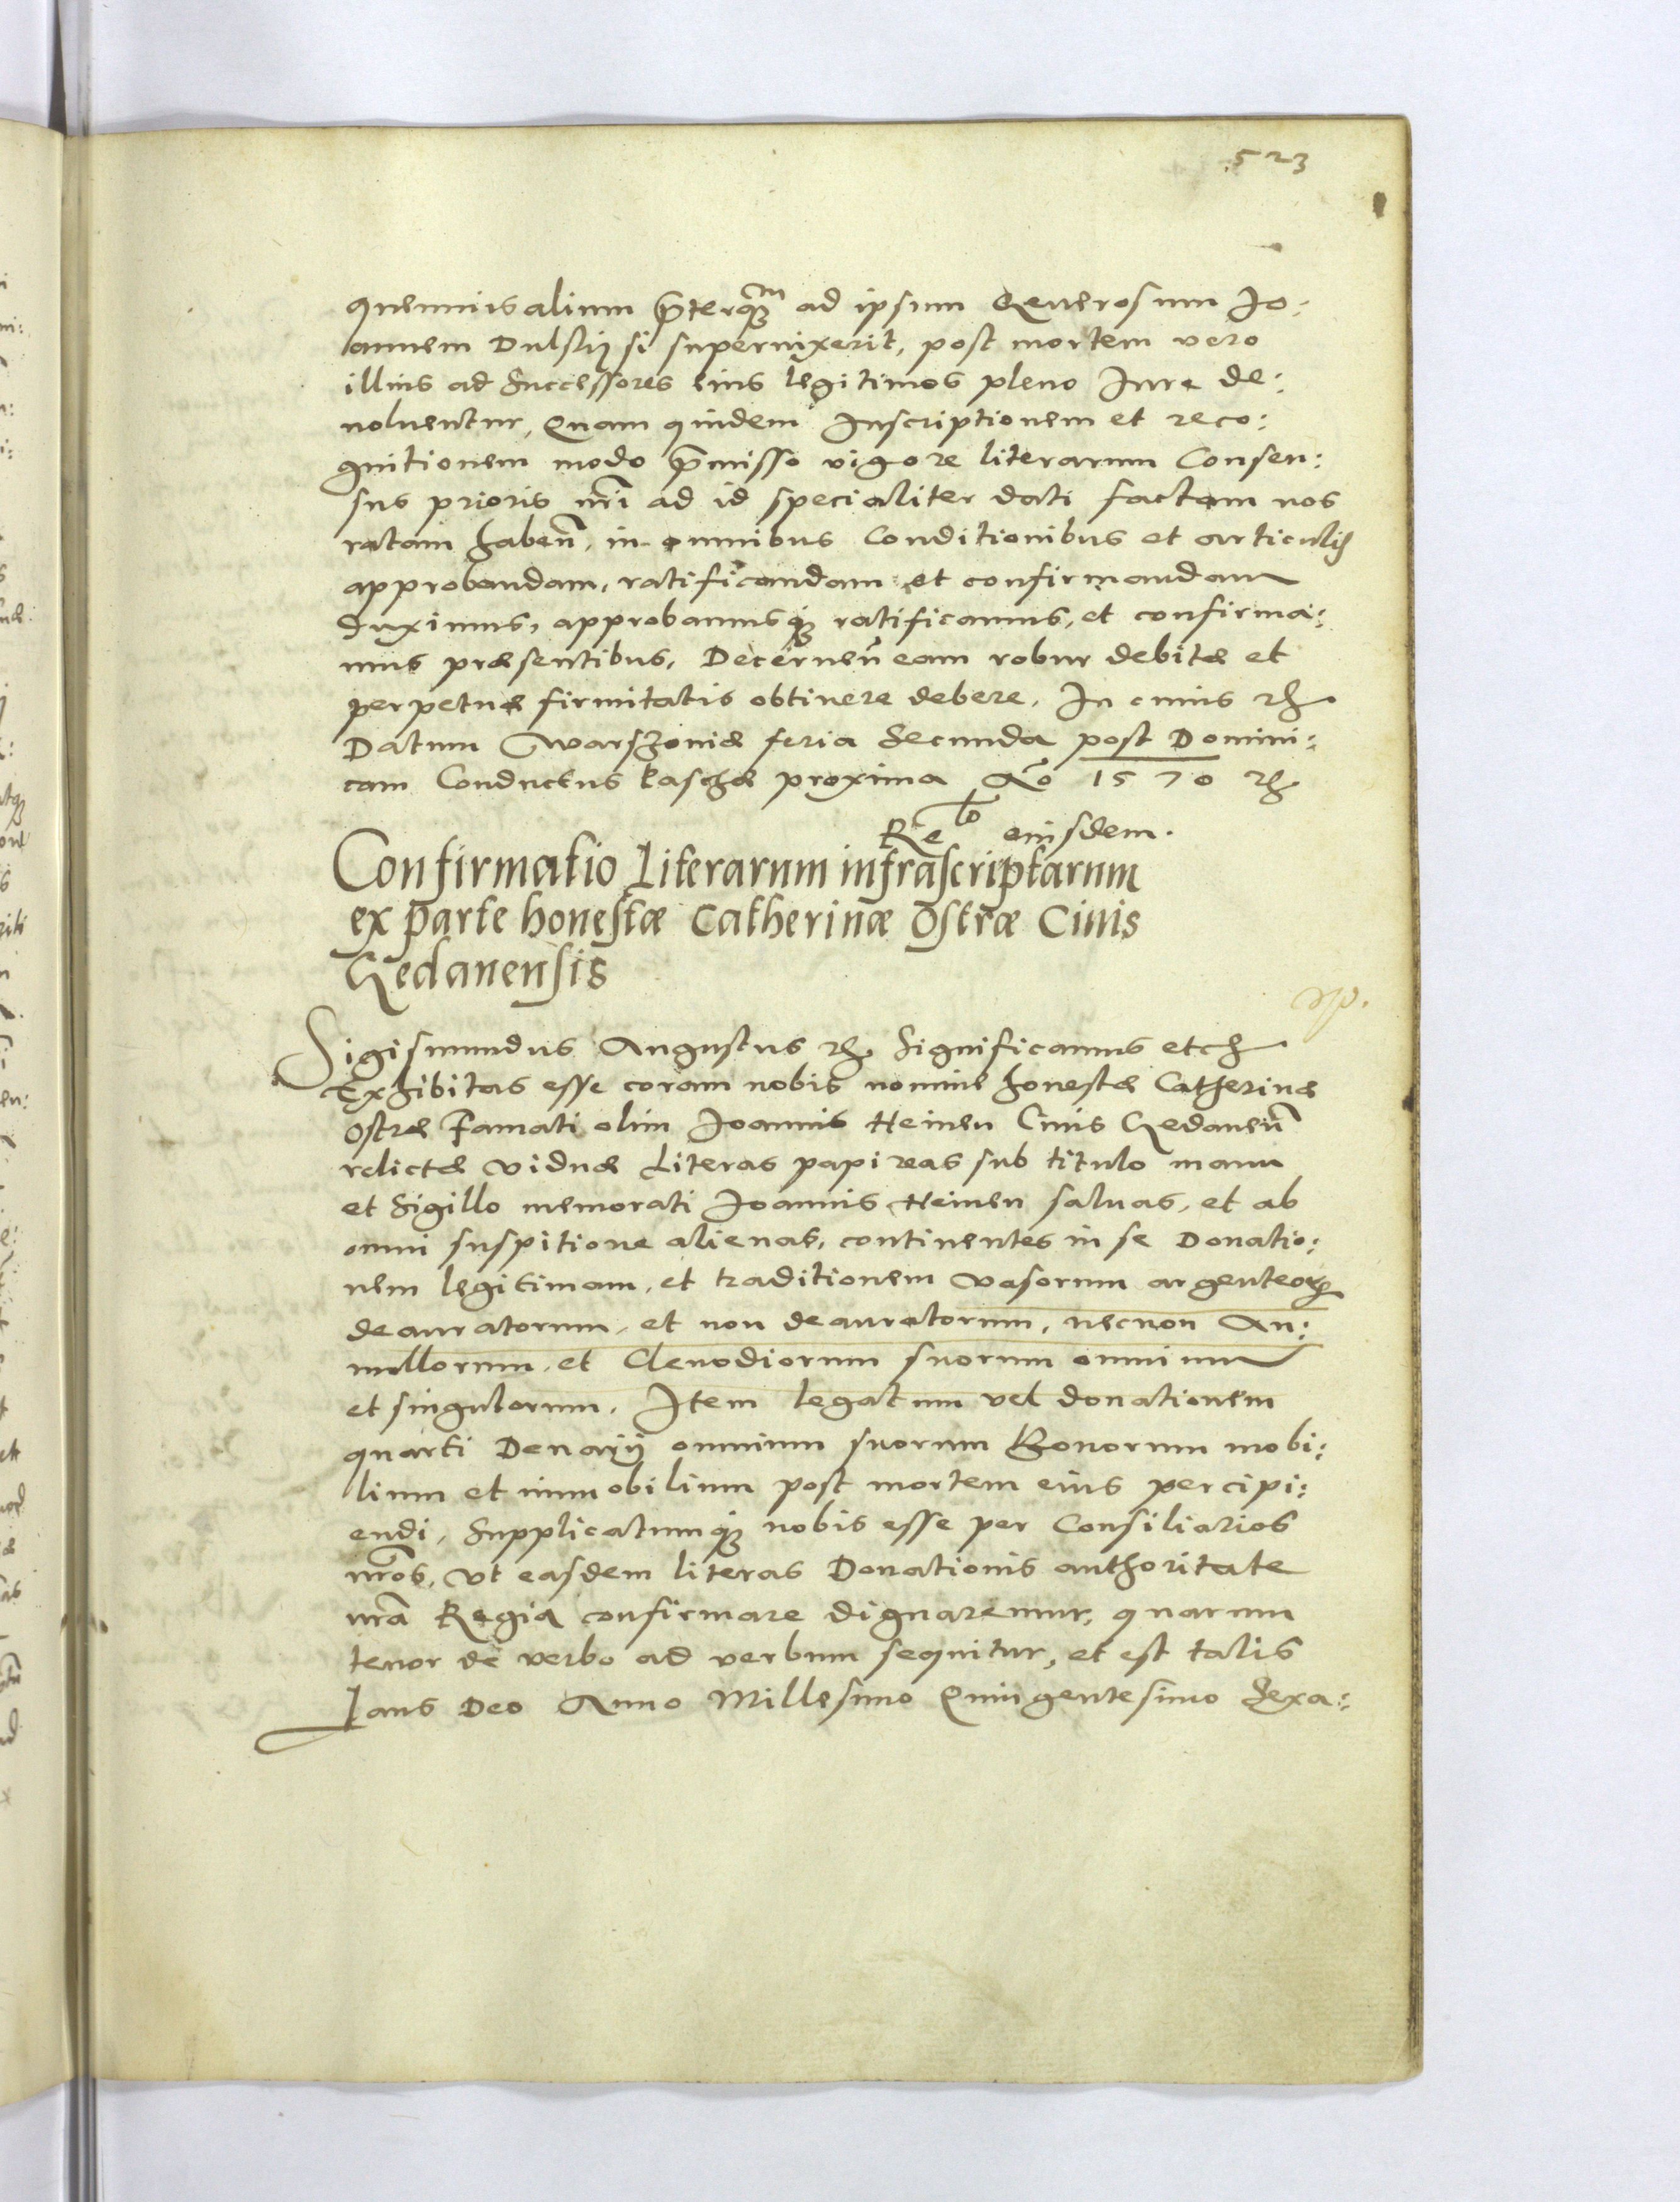 523
quemuis alium p̄terquam ad ipsum Generosum Jo:
annem Dulskij si superuixerit, post mortem vero
illius ad Successores eius legitimos pleno Iure de:
voluentur, Quam quidem Inscriptionem et reco:
gnitionem modo p̄misso vigore literarum Consen:
sus prioris nr̄i ad id specialiter dati factam nos
ratam haben̄, in omnibus Conditionibus et articulis
approbandam, ratificandam et confirmandam
duximus, approbamusq; ratificamus, et confirma:
mus præsentibus, Decernen̄ eam robur debitæ et
perpetuæ firmitatis obtinere debere. In cuius etc
Datum Warszouiæ feria Secunda post Domini:
cam Conductus Paschæ proxima Aō 1570 etc
Re^lo eiusdem.
Confirmatio Literarum infrascriptarum
ex parte honestæ Catherinæ Ostræ Ciuis
Gedanensis
Sigismundus Augustus etc Significamus etc
Exhibitas esse coram nobis nomine honestæ Catherinæ
Ostræ Famati olim Joannis Heinen Ciuis Gedanen̄
relictæ viduæ Literas papireas sub titulo manu
et Sigillo memorati Joannis Heinen saluas, et ab
omni suspitione alienas, continentes in se Donatio:
nem legitimam, et traditionem vasorum argenteorꝝ
deauratorum, et non deauratorum, necnon An:
nullorum, et Clenodiorum suorum omnium
et singulorum. Item legatum vel donationem
quarti Denarij omnium suorum Bonorum mobi:
lium et immobilium post mortem eius percipi:
endi, Supplicatumq; nobis esse per Consiliarios
nr̄os, vt easdem literas Donationis authoritate
nr̄a Regia confirmare dignaremur, quarum
tenor de verbo ad verbum sequitur, et est talis
Laus Deo Anno Millesimo Quingentesimo Sexa: